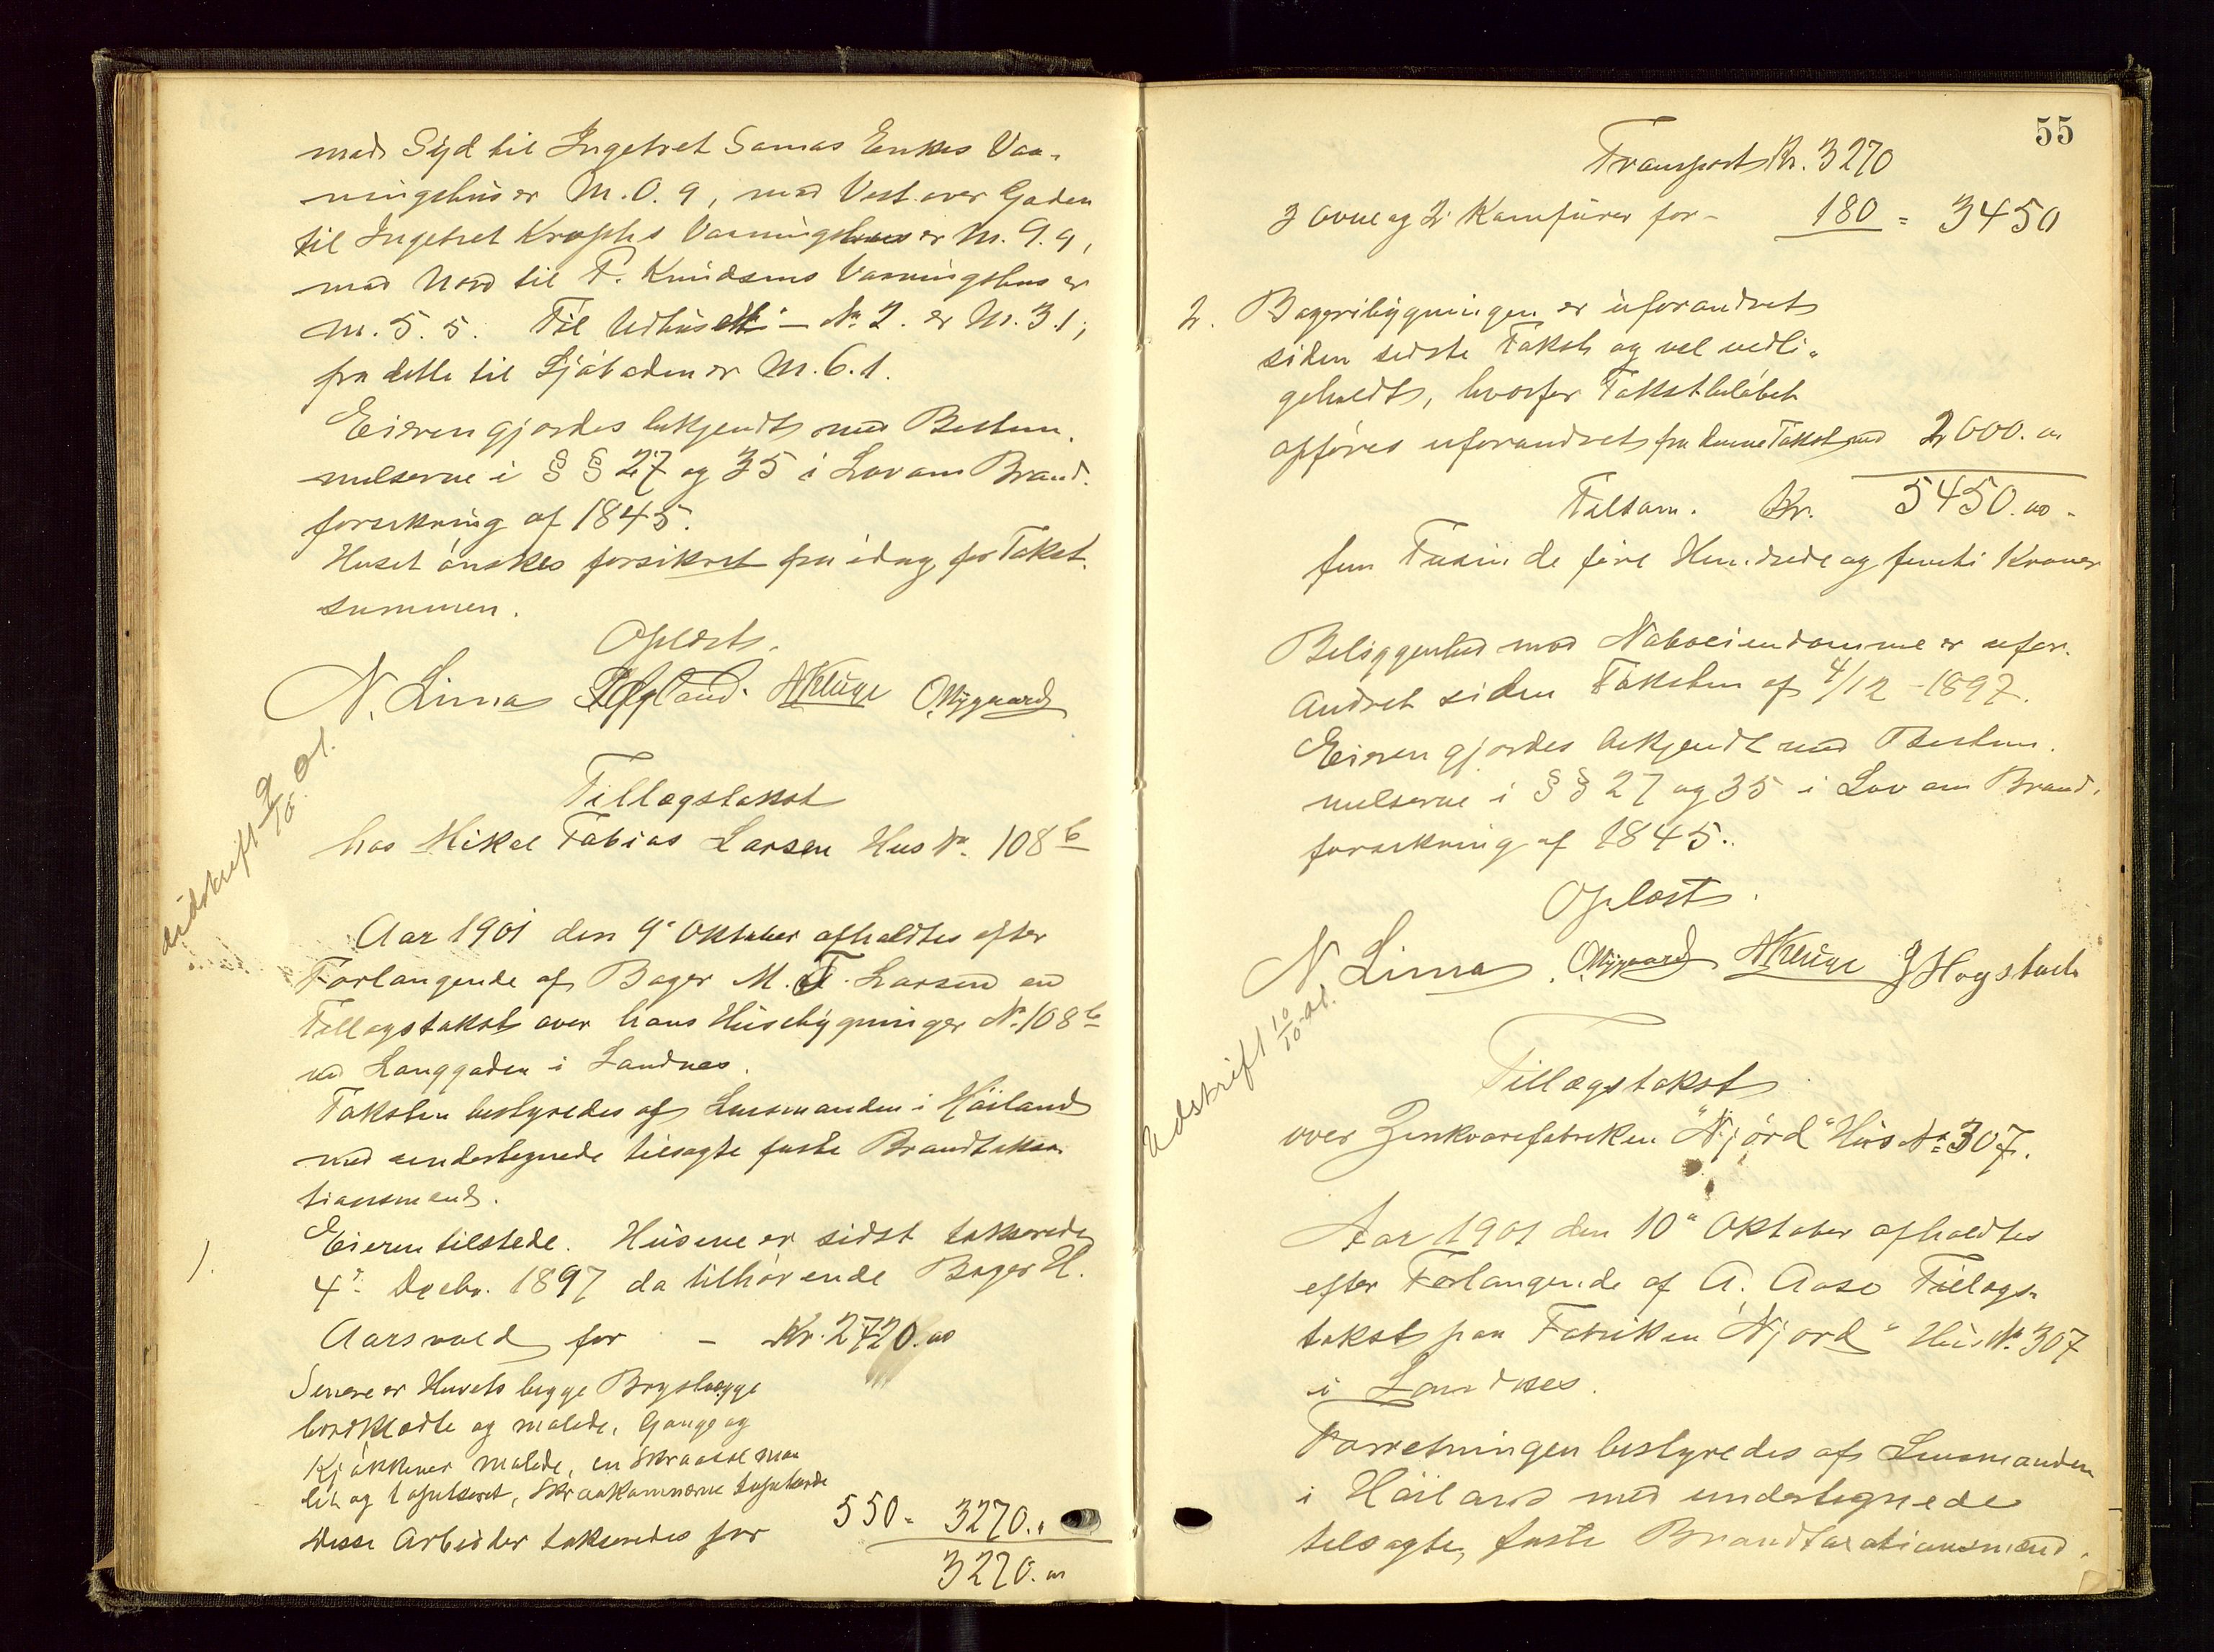 mod Syd til Ingebret Samas Enkes Vaa-
ningshus er M. 0.9, mod Vest over Gaden
til Ingebret Krophs Vaaningshus er M. 9.9,
mod Nord til T. Knudsens Vaaningshus er
M. 5.5. Til Udhuset No 2. er M. 3.1;
fra dette til Sjøboden er M. 6.1.
Eieren gjordes bekjendt med Bestem-
melserne i § § 27 og 35 i Lov om Brand-
forsikring af 1845.
Huset ønskes forsikret fra idag for Takst-
summen.
Oplæst.
N. Lima AKluge O.Nygaard
Udskrift 9/10 01.
Tillægstakst
hos Mikal Tobias Larsen Hus No. 108 b
Aar 1901 den 9de Oktober afholdtes efter
Forlangende af Bager M. T. Larsen en
Tillægstakst over hans Husebygninger No. 108 b
ved Langgaden i Sandnes.
Taksten bestyredes af Lensmanden i Høiland
med undertegnede tilsagte faste Brandtaksa-
tionsmænd.
Eieren tilstede. Husene er sidst takserede
1.
4de Decbr. 1897 da tilhørende Bager H.
Aarsvold for - Kr. 2720.00
Senere er Husets begge Brystvægge
bordklædte og malede, Gange og
Kjøkkener malede, en Skraastue ma-
let og tapetseret, Skraakammerne tapetserede
Disse Arbeider takseredes for 550 = 3270.00
3270.00
55
Transport Kr. 3270
3 Ovne og 2 Komfurer for - 180 = 3450
2. Bageribygningen er uforandret
siden sidste Takst og vel vedli-
geholdt, hvorfor Takstbeløbet
opføres uforandret fra denne Takst med 2000.00
Tilsam. Kr. 5450.00.
fem Tusinde fire Hundrede og femti Kroner
Beliggenhed mod Naboeiendomme er ufor-
andret siden Taksten af 4/12 - 1897.
Eieren gjordes bekjendt med Bestem-
melserne i § § 27 og 35 i Lov om Brand-
forsikring af 1845.
Oplæst.
N. Lima. O.Nygaard AKluge J Hogstad
Udskrift 10/10 01.
Tillægstakst
over Zinkvarefabriken "Njörd" Hus No 307.
Aar 1901 den 10de Oktober afholdtes
efter Forlangende af A. Aase Tillægs-
takst paa Fabriken "Njord" Hus No. 307
i Sandnes.
Forretningen bestyredes af Lensmanden
i Høiland med undertegnede
tilsagte, faste Brandtaxationsmænd.